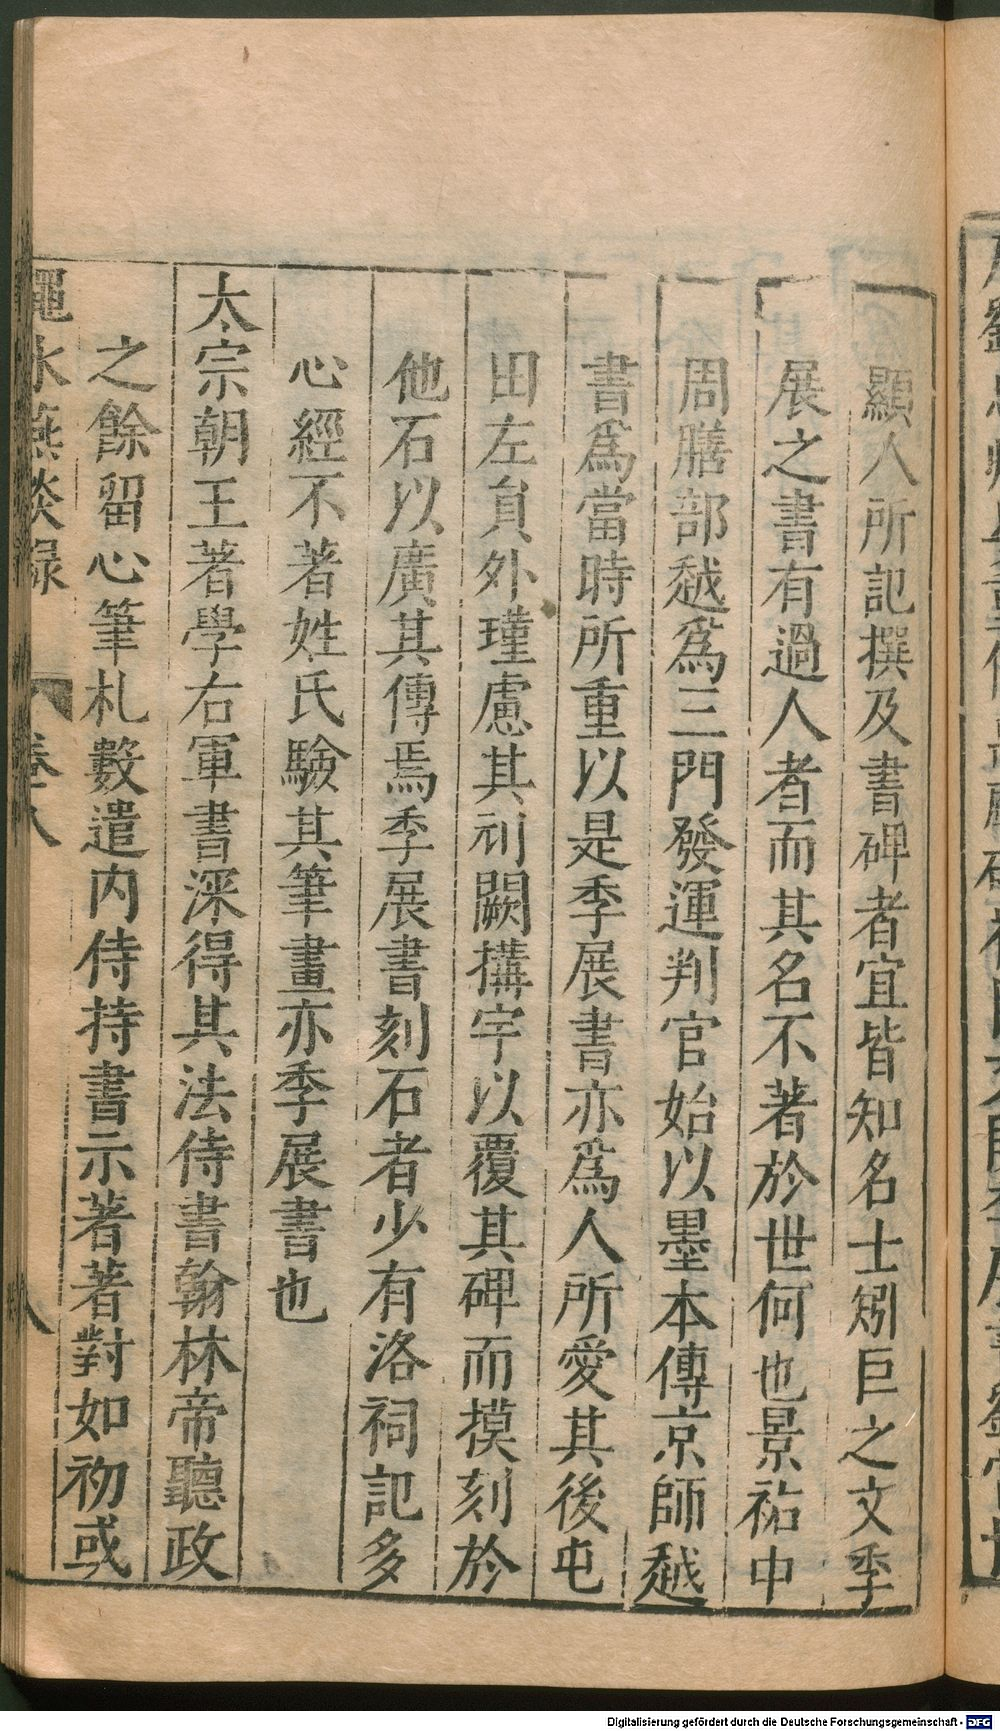 顯人所記撰及書碑者宜皆知名士矧巨之文季
展之書有過人者而其名不著於世何也景祐中
周膳部越爲三門發運判官始以墨本傳京師越
書爲當時所重以是季展書亦爲人所愛其後屯
田左貟外瑾慮其刓闕搆宇以覆其碑而摸刻於
他石以廣其傳焉季展書刻石者少有洛祠記多
心經不著姓氏驗其筆畫亦季展書也
太宗朝王著學右軍書深得其法侍書翰林帝聽政
之餘留心筆札數遣内侍持書示著著對如初或
澠水燕談録 卷八 八
Digitalisierung gefördert durch die Deutsche Forschungsgemeinschaft - DFG